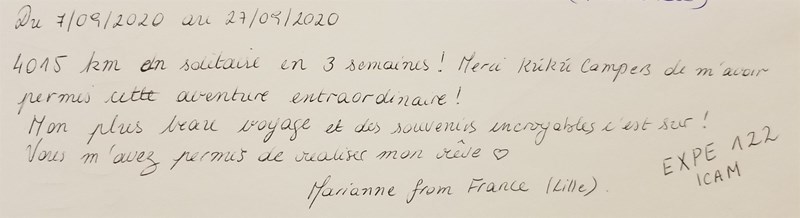 Du 7/09/2020 au 27/09/2020
4015 km en solitaire en 3 semaines ! Merci KúKú Campers de m'avoir
permis cette aventure entraordinaire !
Mon plus beau voyage et des souvenirs incroyables c'est sur !
Vous m'avez permis de realiser mon rêve ♡
EXPE 122
ICAM
Marianne from France (Lille).